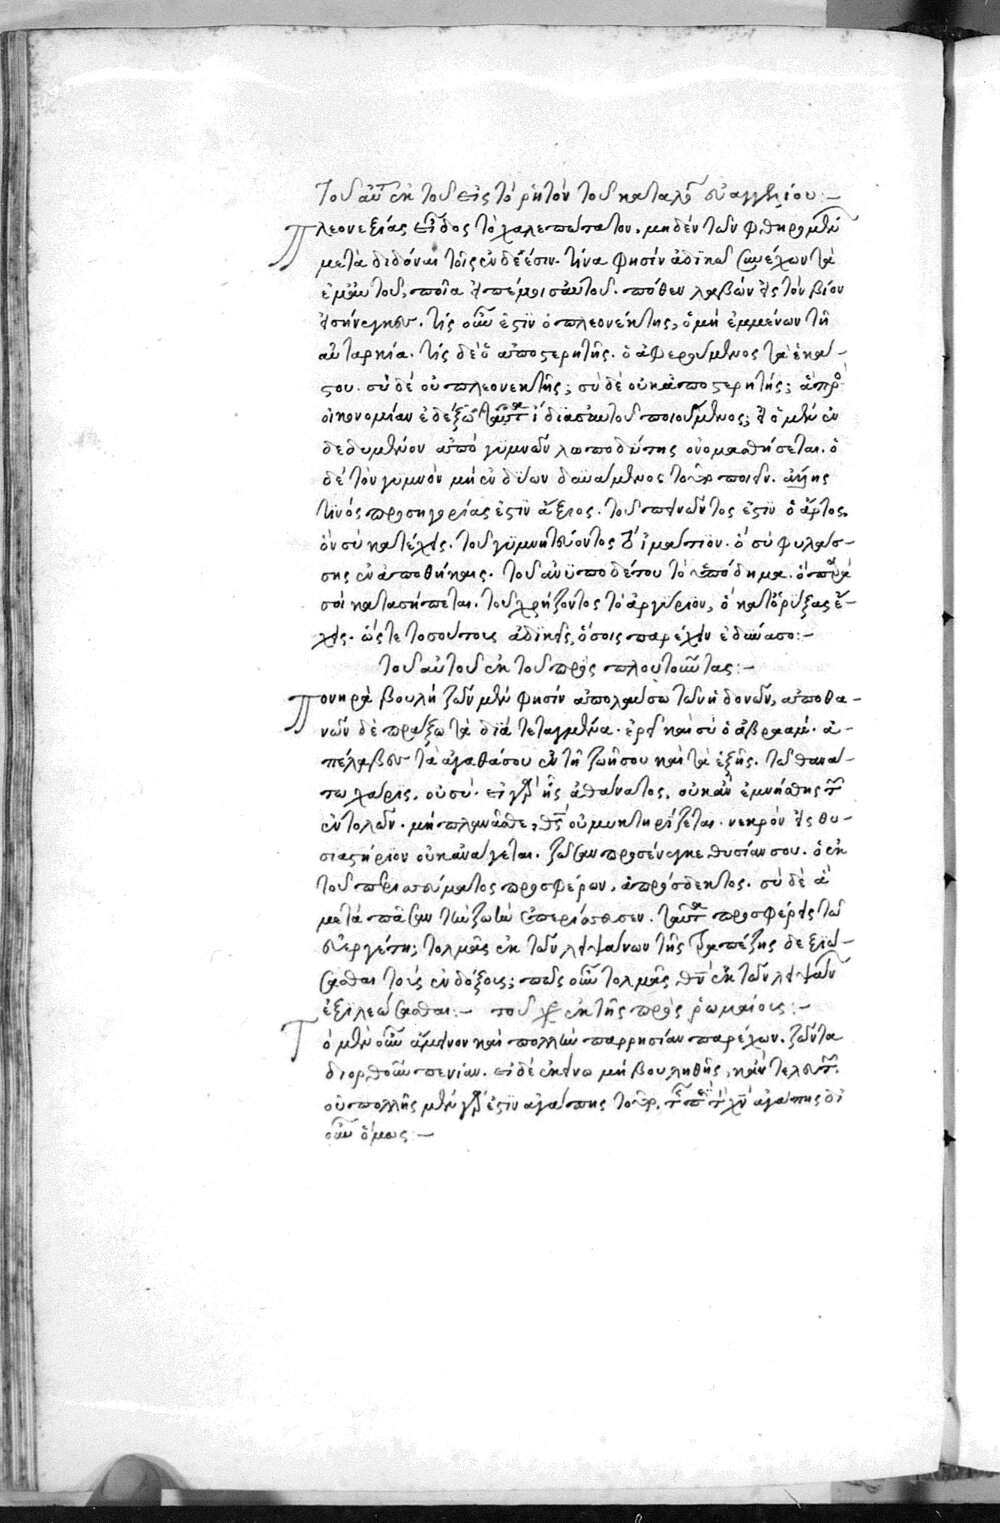 Τοῦ αὐτ ἐκ τοῦ εἰς τὸ ρητὸν τοῦ κατὰ λουκ εὐαγγελίου:—
Πλεονεξίας εἶδος τὸ χαλεπώτατον, μηδὲν τῶν φθηρομένων
μεταδιδόναι τοῖς ἐνδεέσιν. τίνα φησὶν ἀδικῶ συνέχων τὰ
ἐμαυτοῦ, ποῖα εἰπέ μοι σαυτοῦ. πόθεν λαβὼν εἰς τὸν βίον
εἰσήνεγκας. τίς οὖν ἐστὶν ὁ πλεονέκτης, ὁ μὴ ἐμμένων τῇ
αὐταρκία. τίς δὲ ὁ ἀποστερητής. ὁ ἀφερούμενος τὰ ἑκά-
στου. σὺ δὲ οὐ πλεονεκτης; σὺ δὲ οὐκ ἀποστερητής; ἃ πρὸς
οἰκονομίαν ἐδέξω ταῦτα ἴδια σεαυτοῦ ποιούμενος; εἰ ὁ μὲν ἐν
δεδυμένον ἀπογυμνῶν λωποδύτης ὀνομασθήσεται. ὁ
δὲ τὸν γυμνὸν μὴ ἐνδύων δυνάμενος τοῦτο ποιεῖν. ἄλλης
τινός προσηγορίας ἐστὶν ἄξιος. τοῦ πεινῶντος ἐστὶν ὁ ἄρτος,
ὃν σὺ κατέχεις. τοῦ γυμνητεύοντος τὸ ἱμάτιον. ὃ σὺ φυλάσ-
σης ἐν ἀποθήκαις. τοῦ ἀνυποδέτου τὸ ὑπόδημα. ὃ παρὰ
σοὶ κατασήπεται. τοῦ χρήζοντος τὸ ἀργύριον, ὃ κατορύξας ἔ-
χεις. ὥστε τοσούτους ἀδικεῖς, ὅσοις παρέχειν ἐδύνασο:—
τοῦ αὐτοῦ ἐκ τοῦ πρὸς πλουτοῦντας:—
Πονηρὰ βουλὴ ζῶν μὲν φησὶν ἀπολαύσω τῶν ἡδονῶν, ἀποθα-
νὼν δὲ πράξω τὰ διατεταγμένα. ἐρεῖ καὶ σὺ ὁ ἀβραάμ. ἀ-
πέλαβες τὰ ἀγαθά σου ἐν τῇ ζωῇ σου καὶ τὰ ἑξῆς. τῷ θανά-
τω χάρις, οὐ σύ. εἰ γὰρ ἦς ἀθάνατος, οὐκ ἂν ἐμνήσθης τῶν
ἐντολῶν. μὴ πλανᾶσθε, θς οὐ μυκτηρίζεται. νεκρὸν εἰς θυ-
σιαστήριον οὐκ ἀνάγεται. ζῶσαν προσένεγκε θυσίαν σου. ὁ ἐκ
τοῦ περισσεύματος προσφέρων, ἀπρόσδεκτος. σὺ δὲ ἃ
μετὰ πᾶσαν τὴν ζωὴν ἐπερίσσευσεν. ταῦτα προσφέρεις τῷ
εὐεργέτη; τολμᾶς ἐκ τῶν λειψάνων τῆς τραπέζης δεξιώ-
σασθαι τοὺς ἐνδόξους; πῶς οὖν τολμᾶς, θν ἐκ τῶν λειψάνων
ἐξιλεώσασθαι:— τοῦ χρ ἐκ τῆς πρὸς ῥωμαίους:—
Τὸ μὲν οὖν ἄμεινον καὶ πολλὴν παρρησίαν παρέχων. ζῶντα
διορθοῦν πενίαν. εἰ δὲ ἐκεῖνω μὴ βουληθῆς, κἂν τελευτῶν.
οὐ πολλῆς μὲν γάρ ἐστὶν ἀγάπης τοῦτο, τῆς περὶ τὸν χν ἀγάπης δὲ
οὖν ὅμως:—